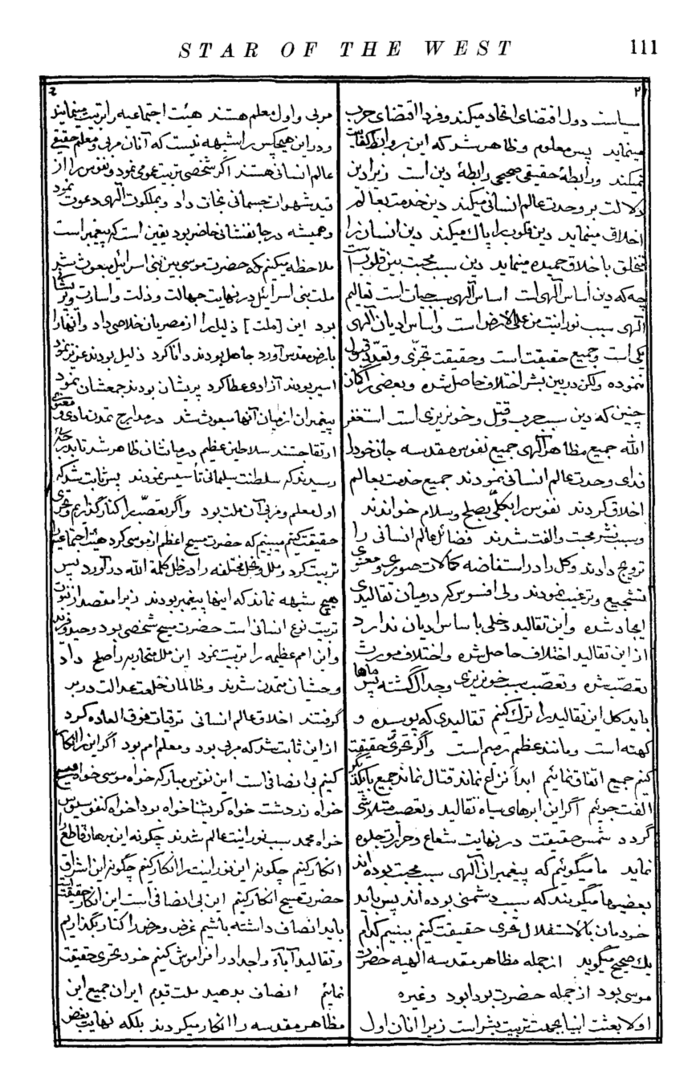 STAR OF THE WEST 111
٢
سیاست دول اقتضای اتحاد میکند و فردا اقتضای حرب
مینماید پس معلوم و ظاهر شد که این روابط کفایت
نمیکند و رابطهٔ حقیقی صحیحی رابطهٔ دین است زیرا دین
دلالت بر وحدت عالم انسانی میکند دین خدمت بعالم
اخلاق مینماید دین قلوب را پاک میکند دین انسان را
متخلق باخلاق حمیده مینماید دین سبب محبت بین قلوب است
چه که دین أساس آلهی است اساس آلهی سبب حیات است تعالیم
آلهی سبب نورانیت من علی الارض است و أساس ادیان آلهی
یکی است و جمیع حقیقت است و حقیقت تجزّی و تعدد قبول
ننموده ولکن در بین بشر اختلاف حاصل شده و بعضی را گمان
چنین که دین سبب حرب و قتل و خونریزی است استغفر
الله جمیع مظاهر آلهی جمیع نفوس مقدسه جان خود را
فدای وحدت عالم انسانی نمودند جمیع خدمت بعالم
اخلاق کردند نفوس را بکلّی بصلح و سلام خواندند
و سبب نشر محبت و الفت شدند فضائل عالم انسانی را
ترویج دادند و کل را در استفاضه کمالات صوری و معنوی
تشجیع و ترغیب نمودند ولی افسوس که درمیان تقالیدی
ایجاد شده و این تقالید دخلی باساس ادیان ندارد
از این تقالید اختلاف حاصل شده و اختلاف مورث
تعصب شده و تعصب سبب خونریزی و جدال گشته پس ماها
باید کل این تقالید را ترک کنیم تقالیدی که پوسیده و
کهنه است و مانند عظم رمیم است و اگر تحرّی حقیقت
کنیم جمیع اتفاق نمائیم ابداً نزاع نماند قتال نماند جمیع با یکدیگر
الفت جوئیم اگر این ابرهای سیاه تقالید و تعصب متلاشی
گردد شمس حقیقت در نهایت شعاع و حرارت جلوه
نماید ما میگوئیم که پیغمبران آلهی سبب محبت بوده اند
بعضیها میگویند که سبب دشمنی بوده اند پس باید
خودمان بالاستقلال تحری حقیقت کنیم ببینیم کدام
یک صحیح میگوید از جمله مظاهر مقدسه الهیه حضرت
موسی بود از جمله حضرت بودا بود و غیره
اولا بعثت انبیا بجهت تربیت بشر است زیرا آنان اول
٤
مربی و اول معلم هستند هیئت اجتماعیه را تربیت مینمایند
و در این هیچکس را شبهه نیست که آنان مربی و معلم حقیقی
عالم انسانی هستند اگر شخصی تربیت عمومی نمود و نفوس را از
قید شهوات جسمانی نجات داد و بملکوت آلهی دعوت نمود
و همیشه در جانفشانی حاضر بود یقین است که پیغمبر است
ملاحظه میکنیم که حضرت موسی بین بنی اسرائیل مبعوث شد
ملت بنی اسرائیل در نهایت جهالت و ذلت و اسارت و پریشانی
بود این [ملت] ذلیل را از مصریان خلاصی داد و آنها را
بارض مقدس آورد جاهل بودند دانا کرد ذلیل بودند عزیز نمود
اسیر بودند آزادی عطا کرد پریشان بودند جمعشان نمود
پیغمبران از میان آنها مبعوث شد در مدارج تمدن مادی و معنوی
ارتقا جستند سلاطین عظیم در میانشان ظاهر شد تا بدرجهٔ
رسیدند که سلطنت سلیمانی تأسیس نمودند پس ثابت شد که
اول معلم و مربی آن ملت بود و اگر تعصب را کنار گذاریم و تحری
حقیقت کنیم میبینیم که حضرت مسیح اعظم از موسی کرد هیئت اجتماعیه را
تربیت کرد و ملل و نحل مختلفه را در ظل کلمة الله در آورد پس
هیچ شبهه نماند که اینها پیغمبر بودند زیرا مقصد از نبوت
تربیت نوع انسانی است حضرت مسیح شخصی بود وحید و فرید
و این امم عظیمه را تربیت نمود این ملل متحاربه را صلح داد
وحشیان متمدن شدند و ظالمان خلعت عدالت در بر
گرفتند اخلاق عالم انسانی ترقیات فوق العاده کرد
از این ثابت شد که مربی بود و معلم امم بود اگر این را انکار
کنیم بی انصافی است این نفوس مبارکه خواه موسی خواه مسیح
خواه زردشت خواه کریشنا خواه بودا خواه کنفوسیوس
خواه محمد سبب نورانیت عالم شدند چگونه این برهان قاطع را
انکار کنیم چگونه این نورانیت را انکار کنیم چگونه این اشراق
حضرت مسیح انکار کنیم این بی انصافی است این انکار حقیقت است
باید انصاف داشته باشیم غرض و مرض را کنار بگذاریم
و تقالید آباء و اجداد را فراموش کنیم خود تحری حقیقت
نمائیم انصاف بدهید ملت قدیم ایران جمیع این
مظاهر مقدسه را انکار میکردند بلکه نهایت بغض